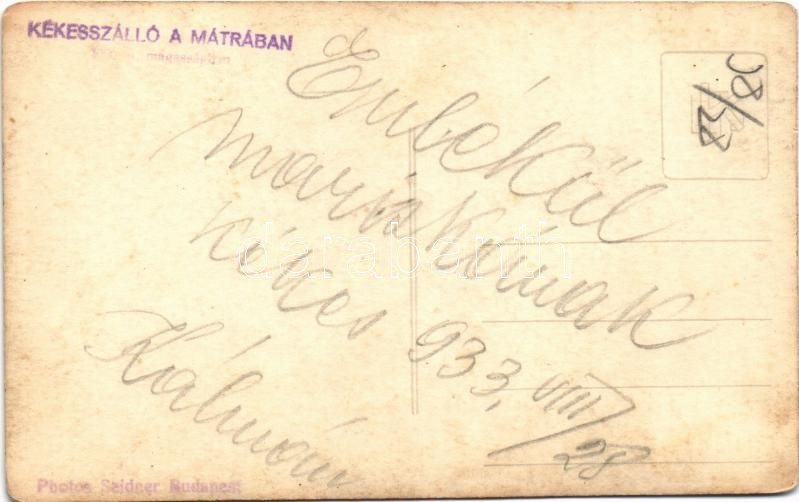 KÉKESSZÁLLÓ A MÁTRÁBAN
magasságban
23/80
Emlékül
Mariskának
Kékes 933, VIII/28
Kálmán
Photos Seidner Budapest
darabanth